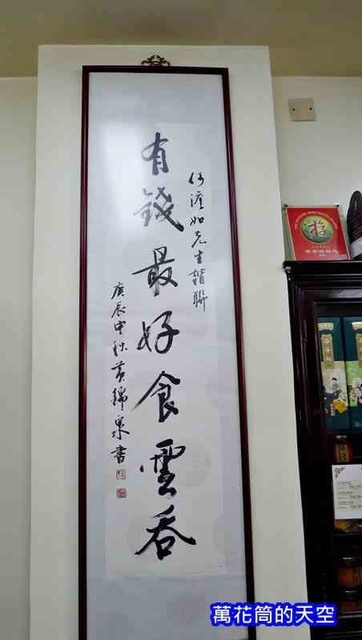 何淡如先生諧聯
有錢最好食雲吞
庚辰中秋黃錦泉書
萬花筒的天空